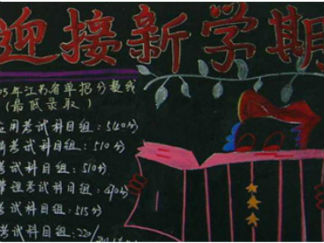 迎接新学期
05年江苏省单招分数线
(最低录取)
应用考试科目组:540分
考试科目组:510分
考试科目组:510分
管理考试科目组:490分
考试科目组:515分
考试科目组: